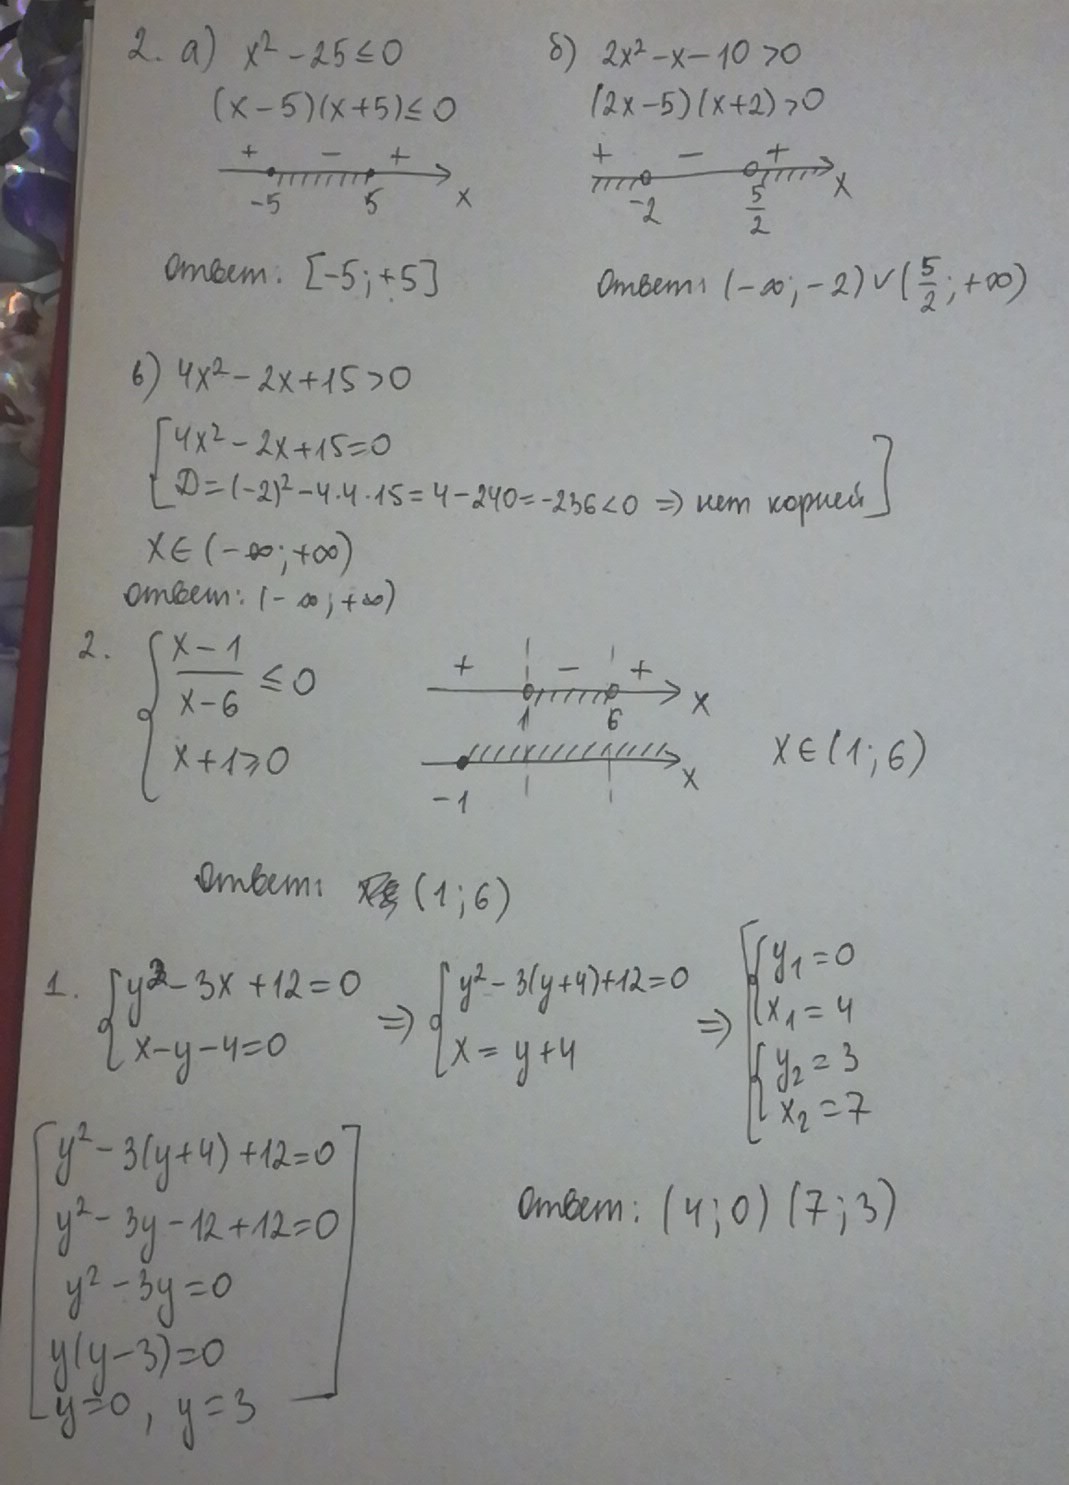 2. а) x² - 25 ≤ 0
(x - 5)(x + 5) ≤ 0
+ - +
-5 5 x
Ответ: [-5; +5]
б) 2x² - x - 10 > 0
(2x - 5)(x + 2) > 0
+ - +
-2 5/2 x
Ответ: (-∞; -2) ∨ (5/2; +∞)
в) 4x² - 2x + 15 > 0
[4x² - 2x + 15 = 0
D = (-2)² - 4·4·15 = 4 - 240 = -236 < 0 ⇒ нет корней]
x ∈ (-∞; +∞)
Ответ: (-∞; +∞)
2. { (x - 1)/(x - 6) ≤ 0
x + 1 ≥ 0
+ - +
1 6 x
-1 x
x ∈ (1; 6)
Ответ: (1; 6)
1. { y² - 3x + 12 = 0
x - y - 4 = 0
⇒ { y² - 3(y + 4) + 12 = 0
x = y + 4
⇒ [ { y₁ = 0
x₁ = 4
{ y₂ = 3
x₂ = 7
[y² - 3(y + 4) + 12 = 0
y² - 3y - 12 + 12 = 0
y² - 3y = 0
y(y - 3) = 0
y = 0, y = 3]
Ответ: (4; 0) (7; 3)